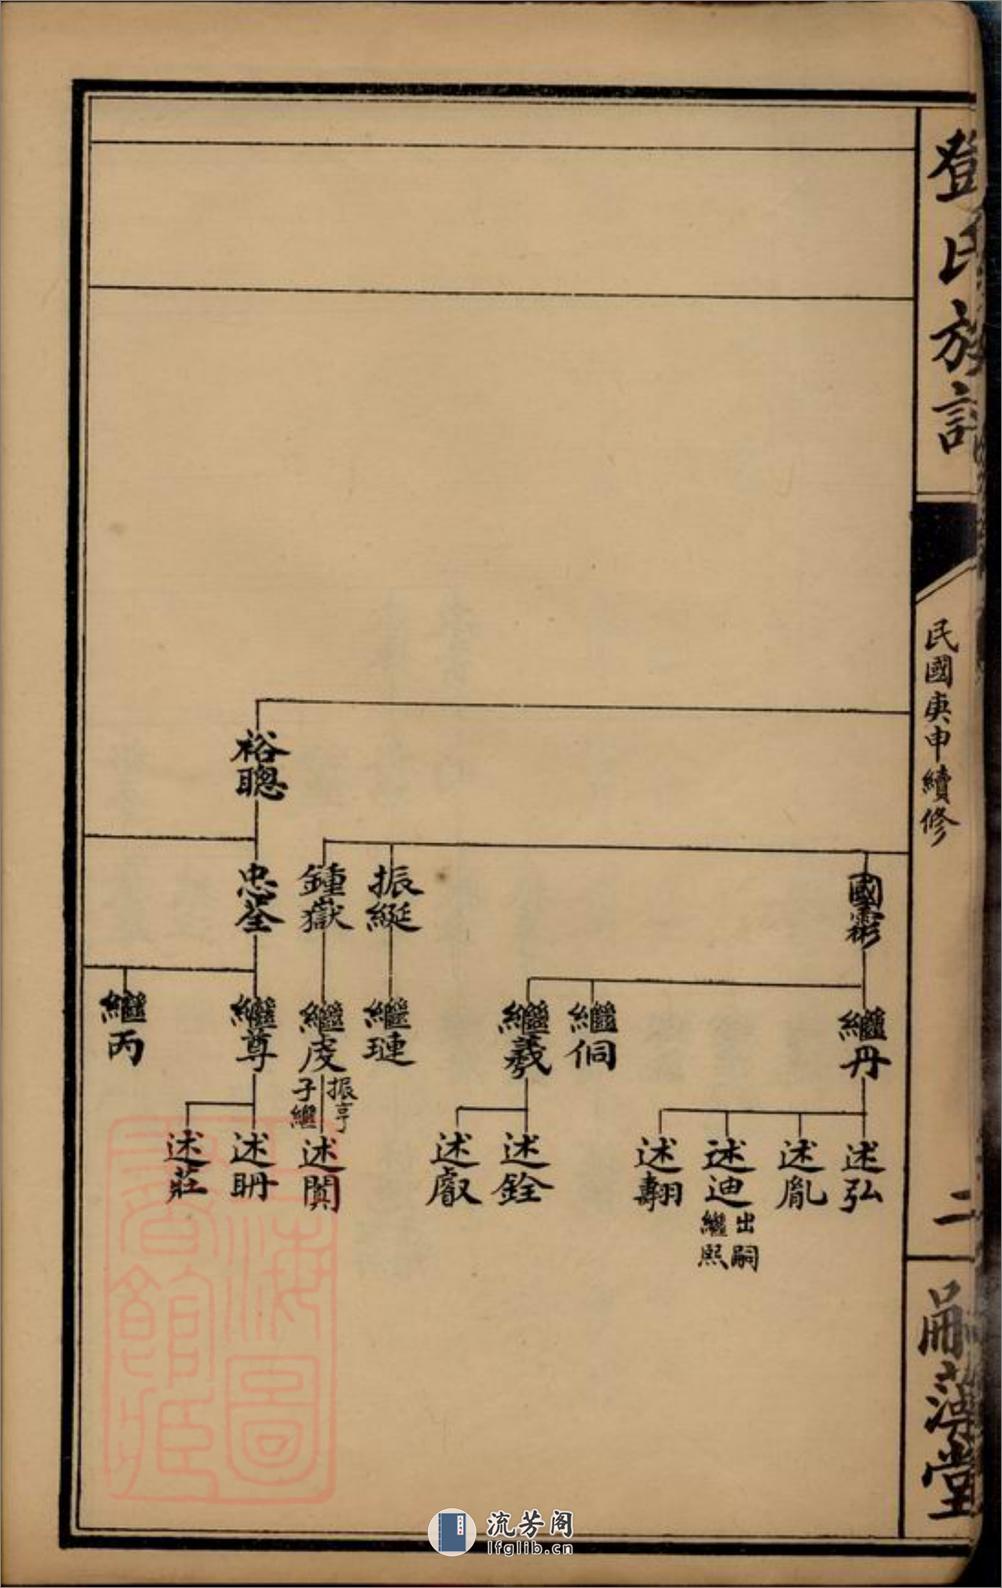 氏族
民國庚申續修
二
堂
裕聰
國霦
振綖
鍾嶽
忠荃
繼丹
繼侗
繼羲
繼璉
繼虔
繼尊
繼丙
振亨
子繼
述弘
述胤
述迪
出嗣
繼熙
述翿
述銓
述叡
述闐
述冊
述莊
流芳阁
lfglib.cn